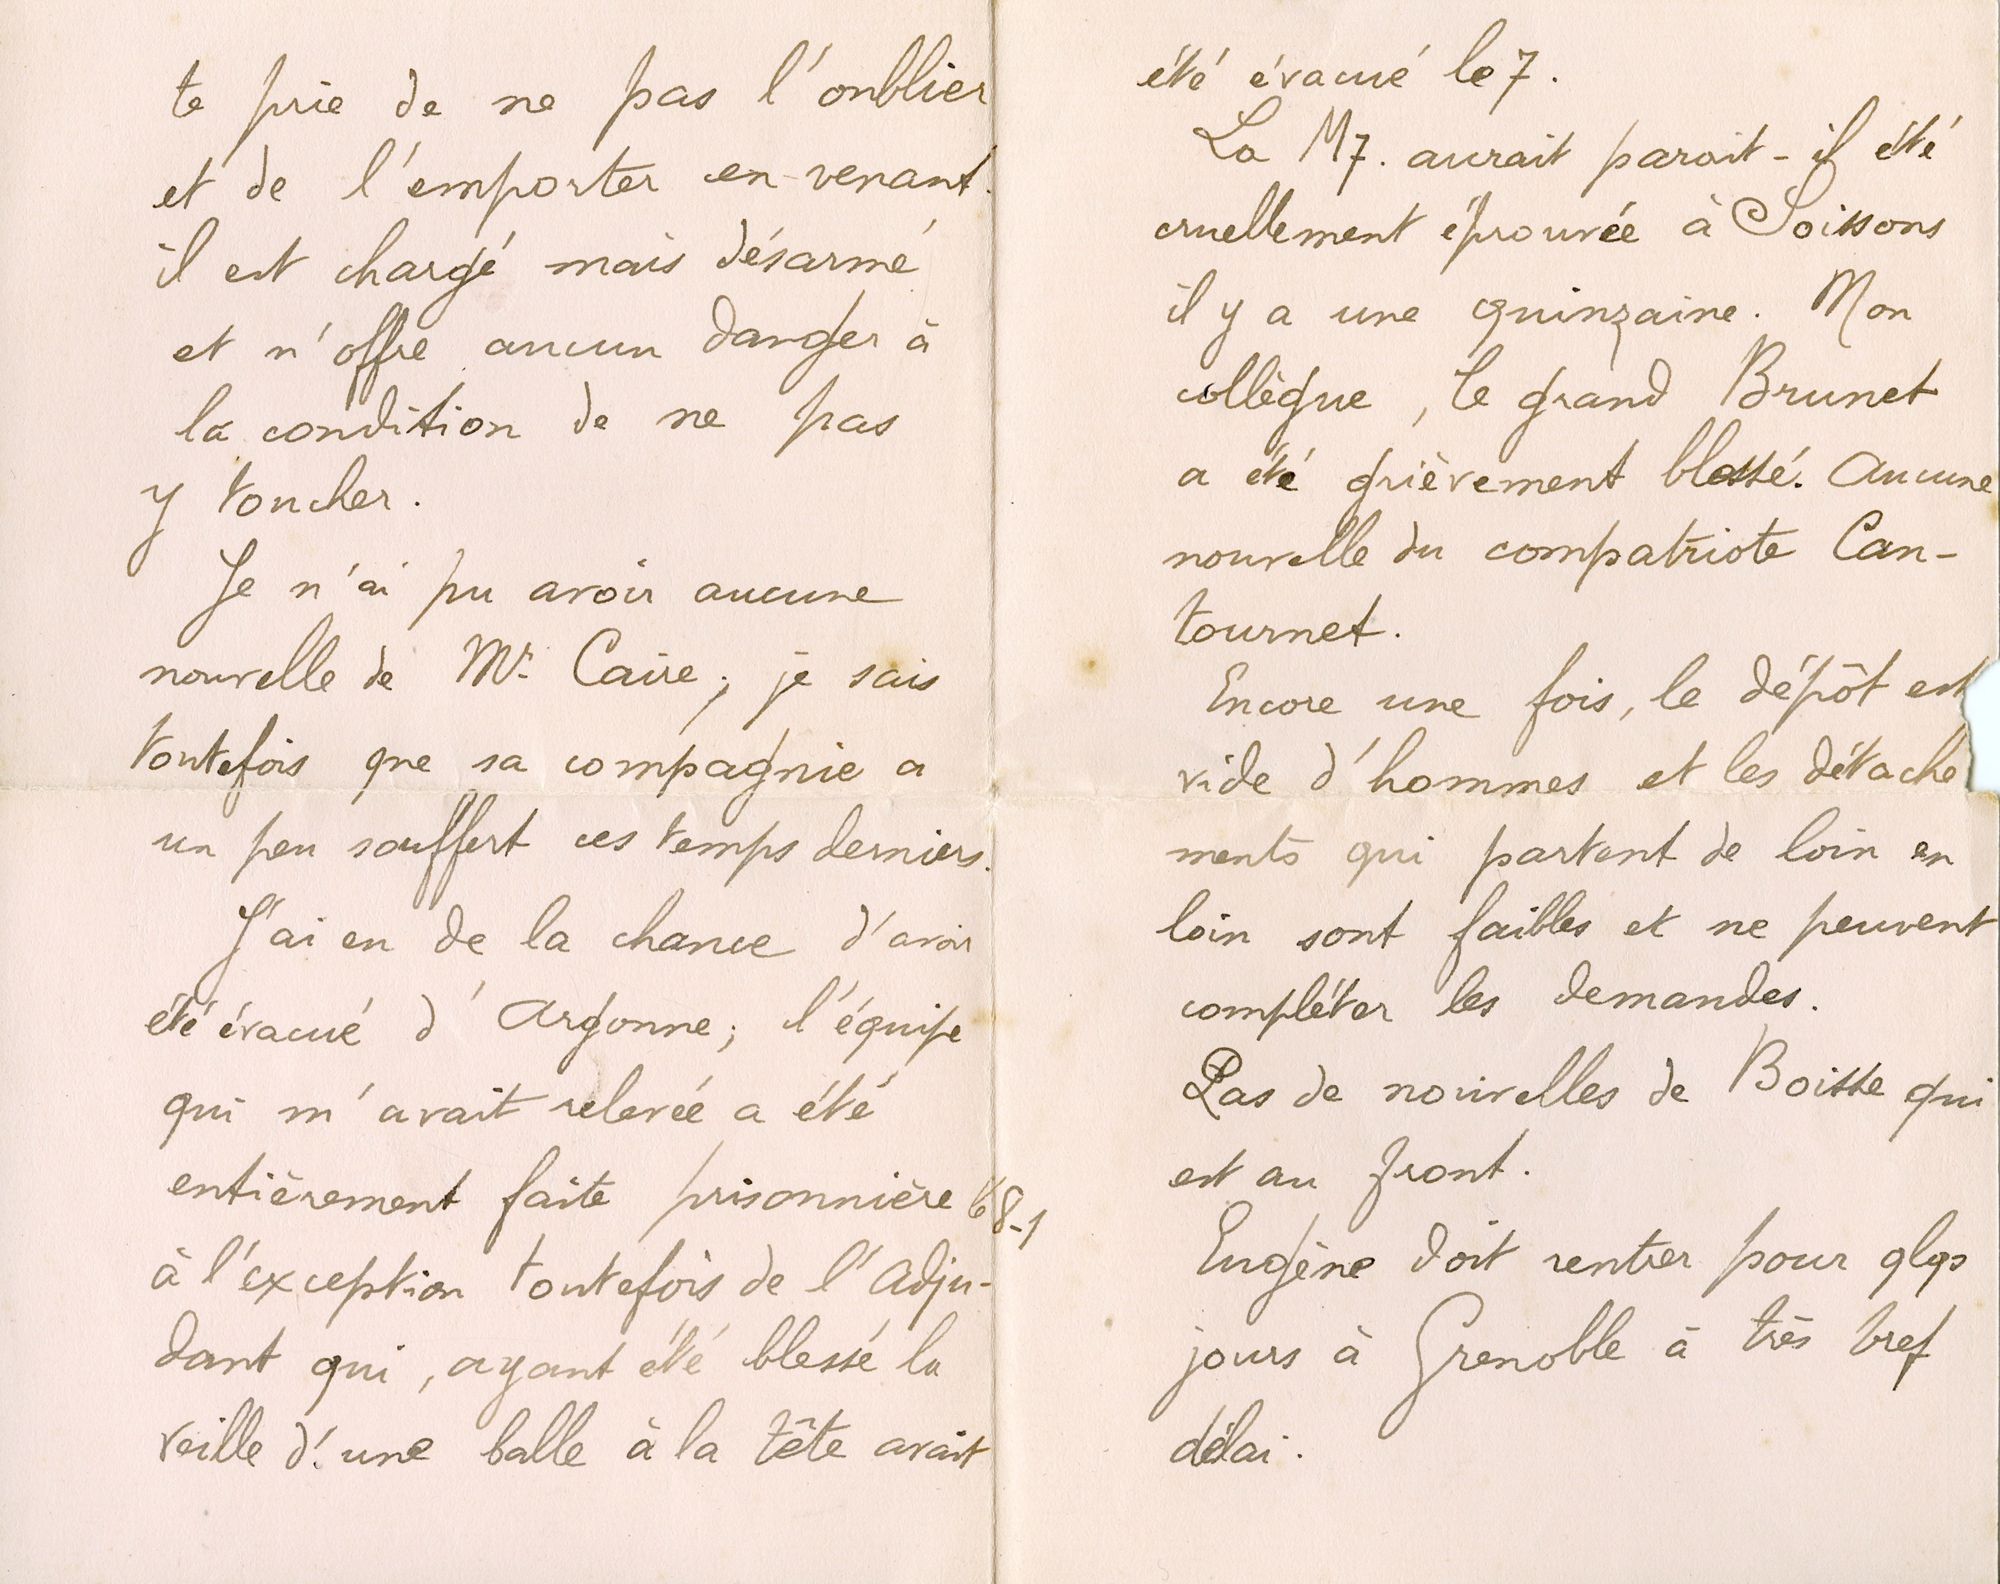 te prie de ne pas l'oublier
et de l'emporter en venant.
il est chargé mais désarmé
et n'offre aucun danger à
la condition de ne pas
y toucher.
Je n'ai pu avoir aucune
nouvelle de Mr. Caire; je sais
toutefois que sa compagnie a
un peu souffert ces temps derniers.
J'ai eu de la chance d'avoir
été évacué d'Argonne; l'équipe
qui m'avait relevée a été
entièrement faite prisonnière le 8-1
à l'exception toutefois de l'Adju-
dant qui, ayant été blessé la
veille d'une balle à la tête avait
été évacué le 7.
La M7. aurait parait-il été
cruellement éprouvée à Soissons
il y a une quinzaine. Mon
collègue, le grand Brunet
a été grièvement blessé. Aucune
nouvelle du compatriote Can-
tournet.
Encore une fois, le dépôt est
vide d'hommes et les détache
ments qui partent de loin en
loin sont faibles et ne peuvent
compléter les demandes.
Pas de nouvelles de Boisse qui
est au front.
Eugène doit rentrer pour qlqs
jours à Grenoble à très bref
délai.